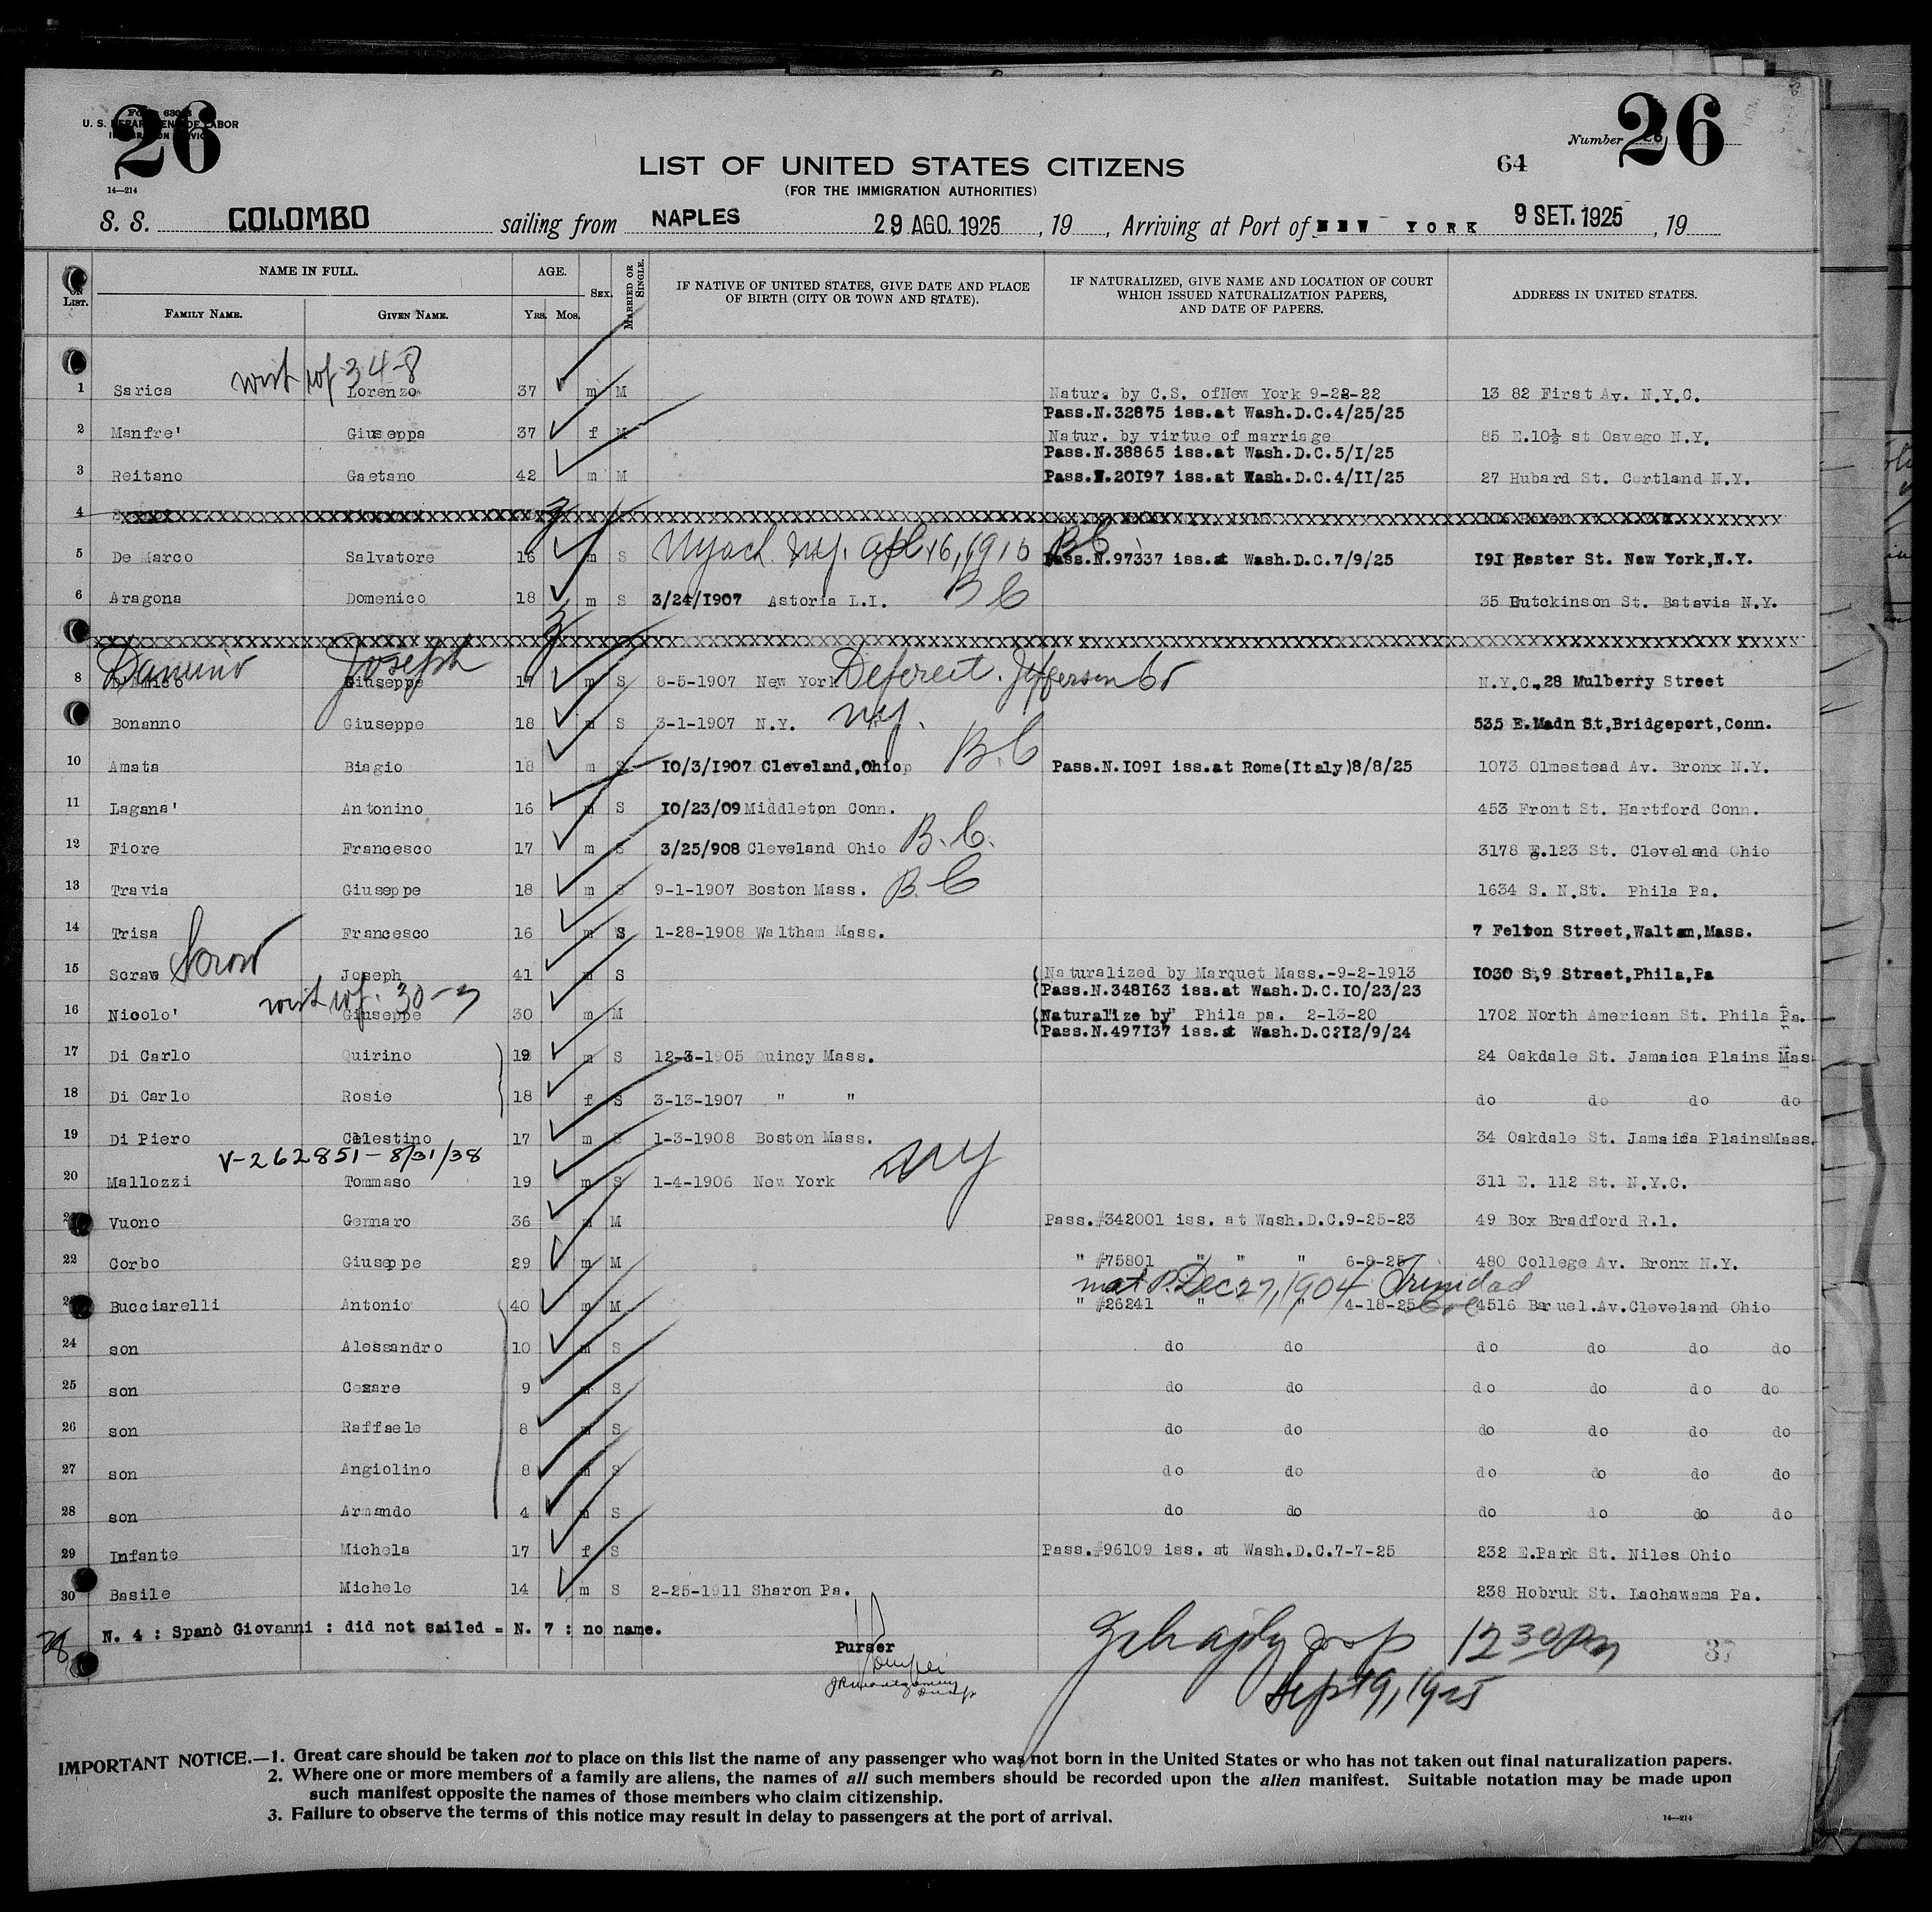 26
Form 630
U. S. DEPARTMENT OF LABOR
IMMIGRATION SERVICE
14—214
Number 26
26
64
LIST OF UNITED STATES CITIZENS
(FOR THE IMMIGRATION AUTHORITIES)
S. S. COLOMBO sailing from NAPLES 29 AGO. 1925, 19 , Arriving at Port of NEW YORK 9 SET. 1925, 19
ON LIST. NAME IN FULL. AGE. SEX. MARRIED OR SINGLE. IF NATIVE OF UNITED STATES, GIVE DATE AND PLACE OF BIRTH (CITY OR TOWN AND STATE). IF NATURALIZED, GIVE NAME AND LOCATION OF COURT WHICH ISSUED NATURALIZATION PAPERS, AND DATE OF PAPERS. ADDRESS IN UNITED STATES.
FAMILY NAME. GIVEN NAME. YRS. MOS.
34-8
1 Sarica Lorenzo 37 m M Natur. by C.S. ofNew York 9-22-22 13 82 First Av. N.Y.C.
Pass.N.32875 iss.at Wash.D.C.4/25/25
2 Manfre' Giuseppa 37 f M Natur. by virtue of marriage 85 E.10½ st Osvego N.Y.
Pass.N.38865 iss.at Wash.D.C.5/I/25
3 Reitano Gaetano 42 m M Pass.N.20I97 iss.at Wash.D.C.4/II/25 27 Hubard St. Cortland N.Y.
4
5 De Marco Salvatore 16 m S Nyack. N.Y. Apl 16, 1910 BC Pass.N.97337 iss.at Wash.D.C.7/9/25 I9I Hester St. New York,N.Y.
6 Aragona Domenico 18 m S 3/24/I907 Astoria L.I. BC 35 Hutckinson St. Batavia N.Y.
Damino Joseph Defereit. Jefferson Co
8 D'Amico Giuseppe 17 m S 8-5-1907 New York N.Y.C.,28 Mulberry Street
NY.
Bonanno Giuseppe 18 m S 3-1-1907 N.Y. 535 E.Madn St,Bridgeport,Conn.
10 Amata Biagio 18 m S IO/3/I907 Cleveland,Ohio B.C Pass.N.IO9I iss.at Rome(Italy)8/8/25 1073 Olmestead Av. Bronx N.Y.
11 Lagana' Antonino 16 m S IO/23/09 Middleton Conn. 453 Front St. Hartford Conn.
12 Fiore Francesco 17 m S 3/25/908 Cleveland Ohio B.C. 3178 E.123 St. Cleveland Ohio
13 Travia Giuseppe 18 m S 9-1-1907 Boston Mass. B.C 1634 S. N.St. Phila Pa.
14 Trisa Francesco 16 m S 1-28-1908 Waltham Mass. 7 Felton Street,Waltam,Mass.
15 Scraw Scrow Joseph 41 m S (Naturalized by Marquet Mass.-9-2-1913 I030 S,9 Street,Phila,Pa
(Pass.N.348I63 iss.at Wash.D.C.IO/23/23
30-3
16 Nicolo' Giuseppe 30 m M (Naturalize by" Phila pa. 2-13-20 1702 North American St. Phila Pa.
(Pass.N.497I37 iss.at Wash.D.C?I2/9/24
17 Di Carlo Quirino 19 m S 12-3-1905 Quincy Mass. 24 Oakdale St. Jamaica Plains Mas
18 Di Carlo Rosie 18 f S 3-13-1907 " " do do do do
19 Di Piero Celestino 17 m S 1-3-1908 Boston Mass. 34 Oakdale St. Jamaica PlainsMass.
V-262851-8/31/38
20 Mallozzi Tommaso 19 m S 1-4-1906 New York NY 311 E. 112 St. N.Y.C.
21 Vuono Gennaro 36 m M Pass.#342001 iss. at Wash.D.C.9-25-23 49 Box Bradford R.l.
22 Corbo Giuseppe 29 m M " #75801 " " " 6-8-25 480 College Av. Bronx N.Y.
nat P. Dec 27, 1904 Trinidad Col
Bucciarelli Antonio 40 m M " #26241 " " 4-18-25 4516 Baruel.Av.Cleveland Ohio
24 son Alessandro 10 m S do do do do do do
25 son Cesare 9 m S do do do do do do
26 son Raffaele 8 m S do do do do do do
27 son Angiolino 8 m S do do do do do do
28 son Armando 4 m S do do do do do do
29 Infante Michela 17 f S Pass.#96109 iss. at Wash.D.C.7-7-25 232 E.Park St. Niles Ohio
30 Basile Michele 14 m S 2-25-1911 Sharon Pa. 238 Hobruk St. Lachawama Pa.
28 N. 4 : Spanò Giovanni : did not sailed = N. 7 : no name.
Purser
12 30 Pm 37
Sept 9, 1925
IMPORTANT NOTICE.—1. Great care should be taken not to place on this list the name of any passenger who was not born in the United States or who has not taken out final naturalization papers.
2. Where one or more members of a family are aliens, the names of all such members should be recorded upon the alien manifest. Suitable notation may be made upon
such manifest opposite the names of those members who claim citizenship.
3. Failure to observe the terms of this notice may result in delay to passengers at the port of arrival.
14—214